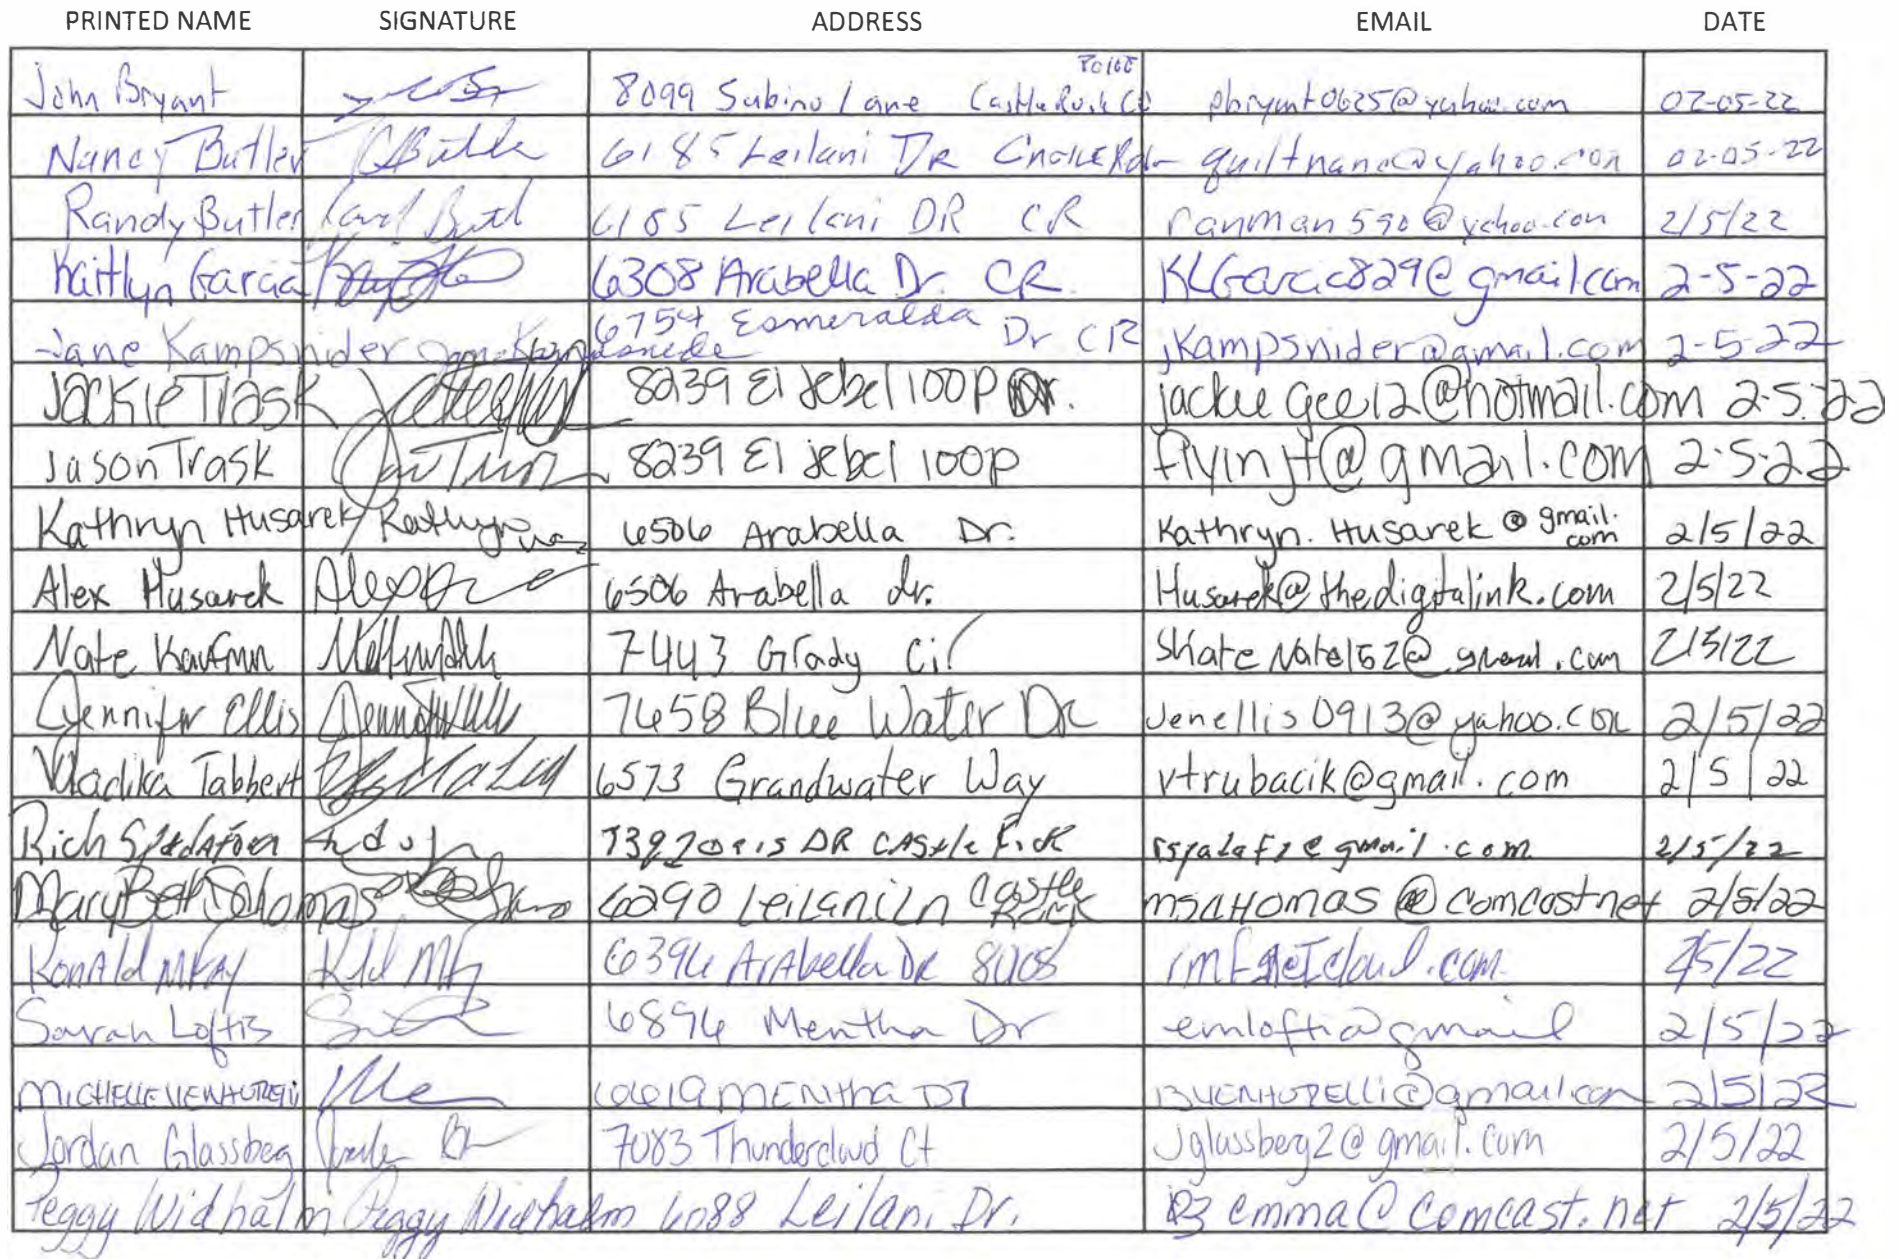 PRINTED NAME SIGNATURE ADDRESS EMAIL DATE
John Bryant 8099 Sabino Lane Castle Rock CO 80108 pbryant0625@yahoo.com 02-05-22
Nancy Butler 6185 Leilani DR 02-05-22
Randy Butler 6185 Leilani DR CR ranman590@yahoo.com 2/5/22
Kaitlyn Garcia 6308 Arabella Dr. CR KLGarcia829@gmail.com 2-5-22
Jane Kampsnider 6754 Esmeralda Dr CR jkampsnider@gmail.com 2-5-22
Jackie Trask 8239 El jebel loop jackiegee12@hotmail.com 2-5-22
Jason Trask 8239 El jebel loop flyinjt@gmail.com 2-5-22
Kathryn Husarek Kathryn 6506 Arabella Dr. Kathryn.Husarek@gmail.com 2/5/22
Alex Husarek 6506 Arabella dr. Husarek@thedigitalink.com 2/5/22
Nate Kaufman 7443 Grady Cir SkateNate152@gmail.com 2/5/22
Jennifer Ellis 7658 Blue Water Dr Jenellis0913@yahoo.com 2/5/22
Vladika Tabbert 6573 Grandwater Way vtrubacik@gmail.com 2/5/22
Rich DR Castle Rock 2/5/22
Mary Beth Thomas 6290 Leilani Ln Castle Rock @comcast.net 2/5/22
Ronald 6396 Arabella Dr 2/5/22
Sarah Loftis 6896 Mentha Dr emlofti@gmail 2/5/22
Michelle 6619 Mentha Dr 2/5/22
Jordan Glassberg 7083 Thundercloud Ct Jglassberg2@gmail.com 2/5/22
Peggy Widhalm Peggy Widhalm 6088 Leilani Dr. emma@comcast.net 2/5/22